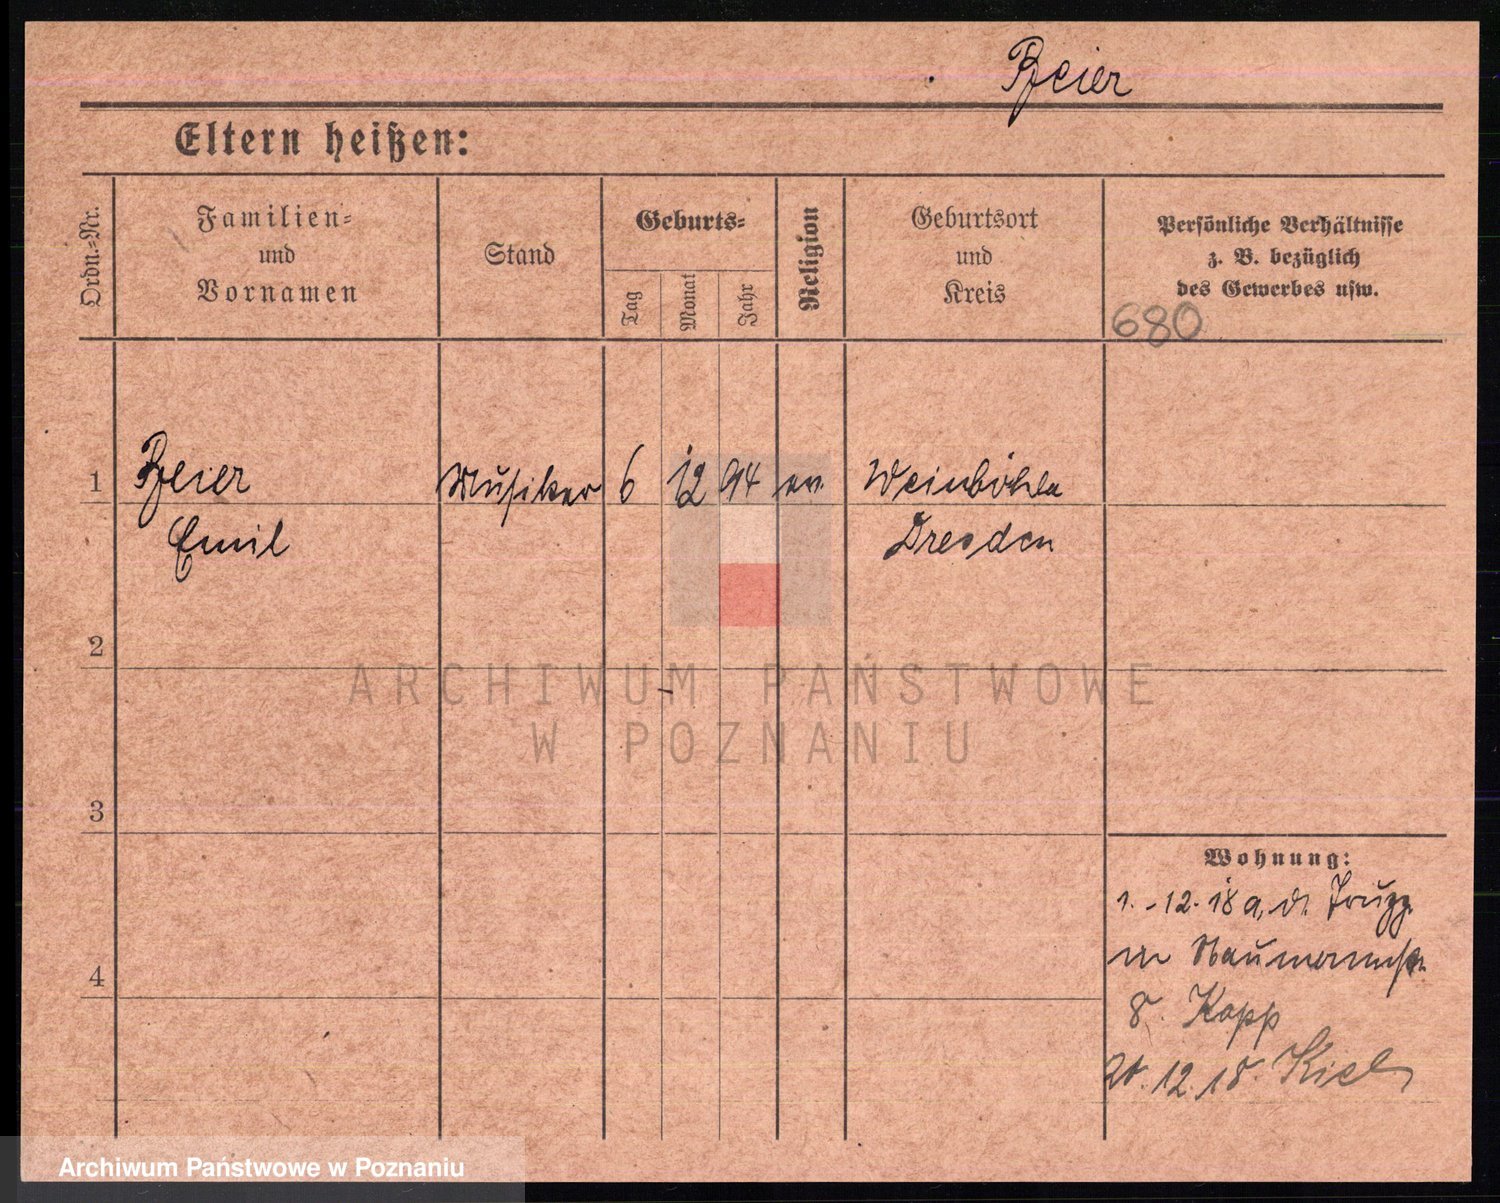 Beier
Eltern heißen:
Ordn.=Nr.
Familien=
und
Vornamen
Stand
Geburts=
Tag
Monat
Jahr
Religion
Geburtsort
und
Kreis
Persönliche Verhältnisse
z. B. bezüglich
des Gewerbes usw.
680
1
Beier
Emil
Musiker
6
12
94
ev.
Weinböhla
Dresden
2
3
4
Wohnung:
1.-12.18 a. d.
Naumannstr.
8. Kopp
12.18. Kiel
ARCHIWUM PAŃSTWOWE
W POZNANIU
Archiwum Państwowe w Poznaniu